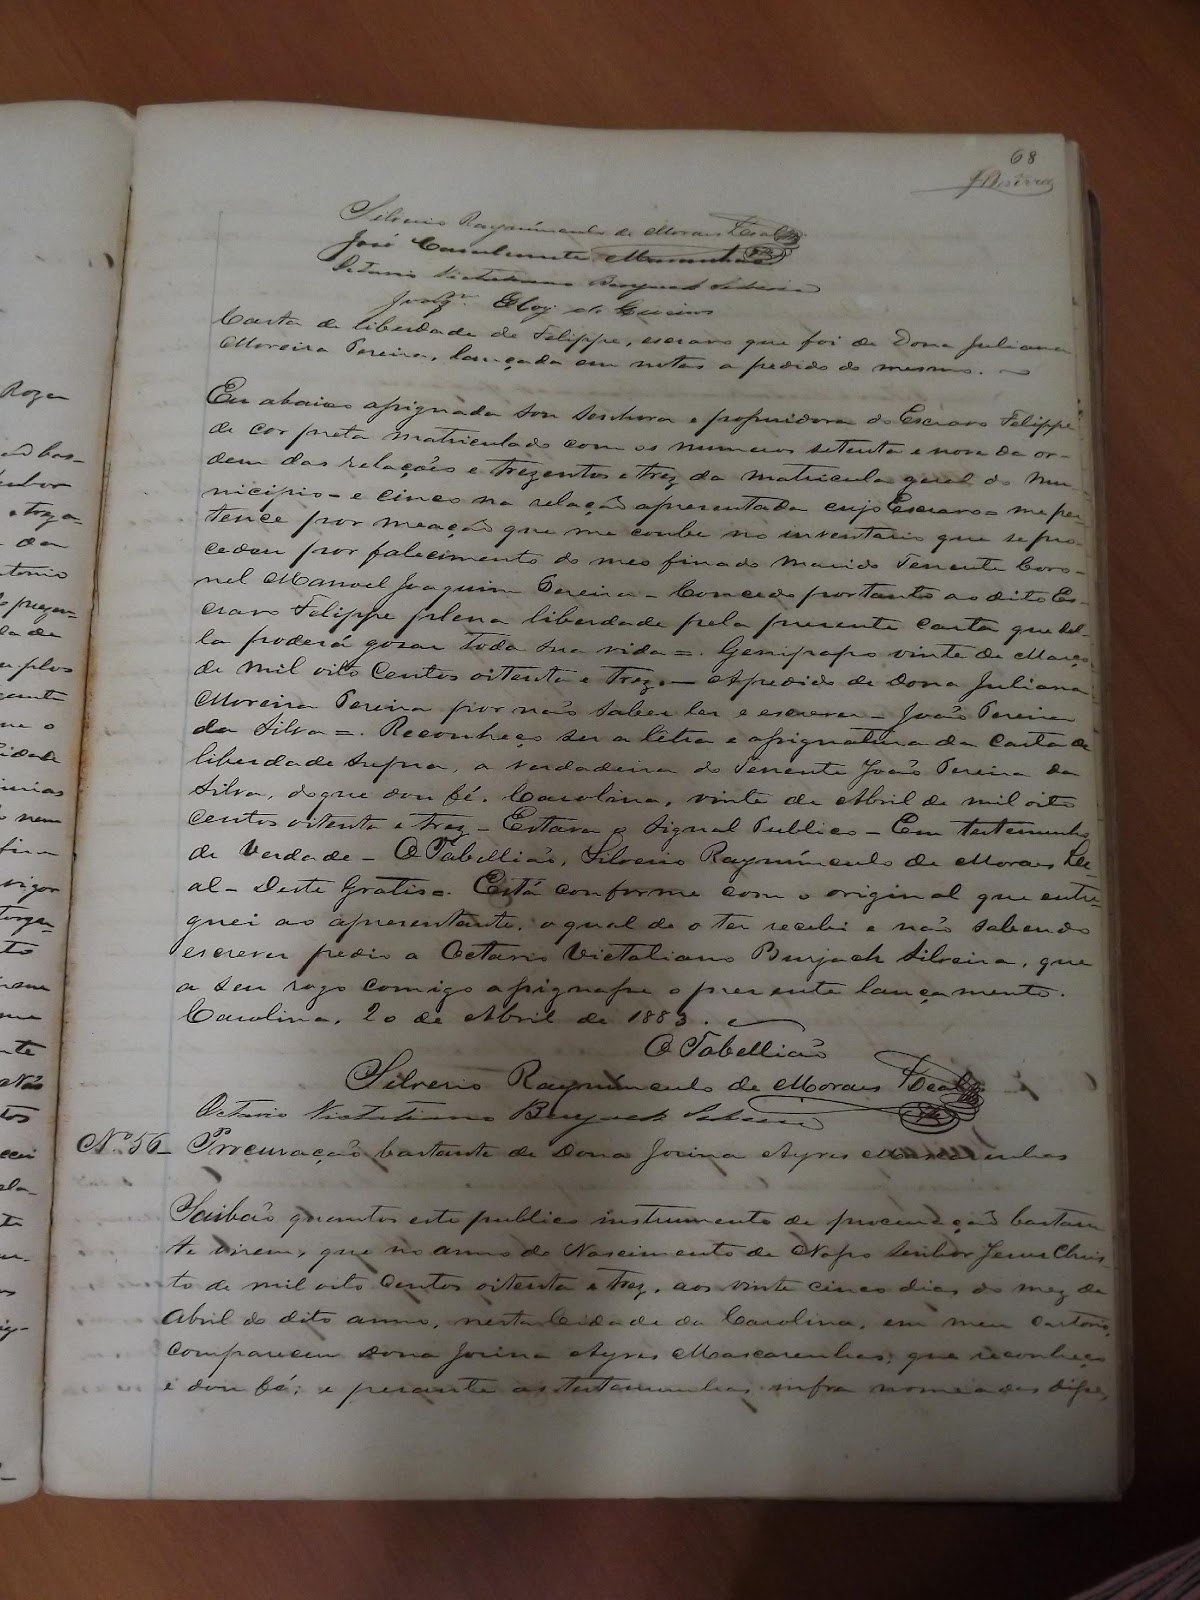 68
Silverio Raymúnculo de Moraes Leal
José Maranhão
Octavio Victaliano Burjack Silveira
Eloy de
Carta de liberdade de Felippe, escravo que foi de Dona Juliana
Moreira Pereira, lançada em notas a pedido do mesmo.
Eu abaixo assignada sou senhora e possuidora do Escravo Felippe
de cor preta matriculado com os numeros setenta e nove da or-
dem das relações e trezentos e trez da matricula geral do Mu-
nicipio - e cinco na relação apresentada cujo Escravo = me per-
tence por meação que me coube no inventario que se pro-
cedeu por falecimento do meo finado marido Tenente Coro-
nel Manoel Joaquim Pereira - Concedo portanto ao dito Es-
cravo Felippe plena liberdade pela presente carta que del-
la poderá gosar toda sua vida =. Genipapo vinte de Março
de mil oito Centos oitenta e trez. - Apedido de Dona Juliana
Moreira Pereira por não saber ler e escrever - João Pereira
da Silva =. Reconheço ser a létra e assignatura da carta de
liberdade supra, a verdadeira do Tenente João Pereira da
Silva, do que dou fé. Carolina, vinte de Abril de mil oito
centos oitenta e trez - Estava o Signal Publico - Em testemunho
de Verdade - O Tabellião, Silverio Raymúnculo de Moraes Le-
al - Deste Gratis =. Está conforme com o original que entre-
guei ao apresentante, o qual de o ter recebi e não sabendo
escrever pedio a Octavio Victaliano Burjack Silveira, que
a seu rogo comigo assignasse o presente lançamento.
Carolina, 20 de Abril de 1883.
O Tabellião
Silverio Raymúnculo de Moraes Leal
Octavio Victaliano Burjack Silveira
Nº 56 - Procuração bastante de Dona Jovina Ayres Mascarenhas
Saibão quantos este publico instrumento de procuração bastan
te virem, que no anno do Nascimento de Nosso Senhor Jesus Chris
to de mil oito Centos oitenta e trez, aos vinte cinco dias do mez de
Abril do dito anno, nesta Cidade da Carolina, em meu cartorio,
compareceu Dona Jovina Ayres Mascarenhas; que reconheço
e dou fé; e perante as testemunhas infra nomeadas disse,